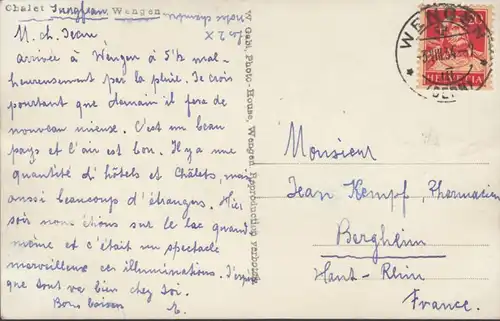 Chalet Jungfrau, Wengen.
La 2 X
notre chambre
M. ch. Jean
arrivée à Wengen à 5½ mal-
heureusement par la pluie. Je crois
pourtant que demain il fera de
nouveau mieux. C'est un beau
pays et l'air est bon. Il y a une
quantité d'hôtels et Châlets, mais
aussi beaucoup d'étrangers. Hier
soir nous étions sur le lac quand
même et c'était un spectacle
merveilleux ces illuminations. J'espère
que tout va bien chez toi.
Bons baisers
W. Gabi, Photo-House, Wengen. Reproduction verboten
WENGEN
(BERN)
HELVETIA
Monsieur
Jean Kempf, Pharmacien
Bergheim
Haut-Rhin
France.